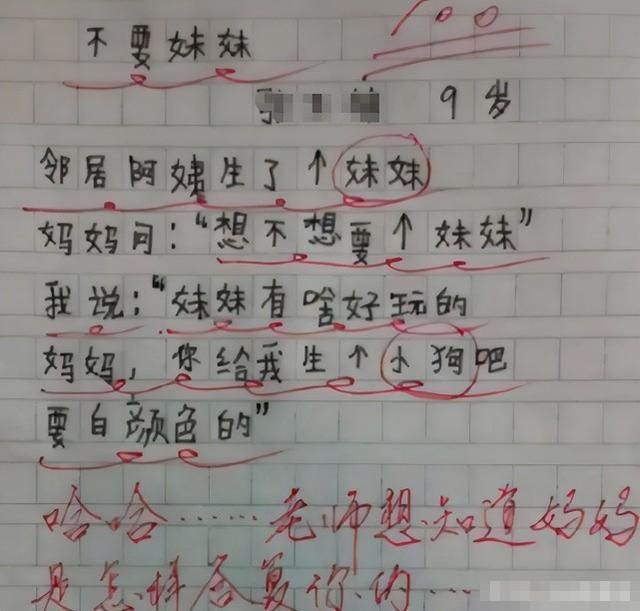 不要妹妹
100
9岁
邻居阿姨生了个妹妹
妈妈问：“想不想要个妹妹”
我说：“妹妹有啥好玩的
妈妈，你给我生个小狗吧
要白颜色的”
哈哈……老师想知道妈妈
是怎样答复你的…